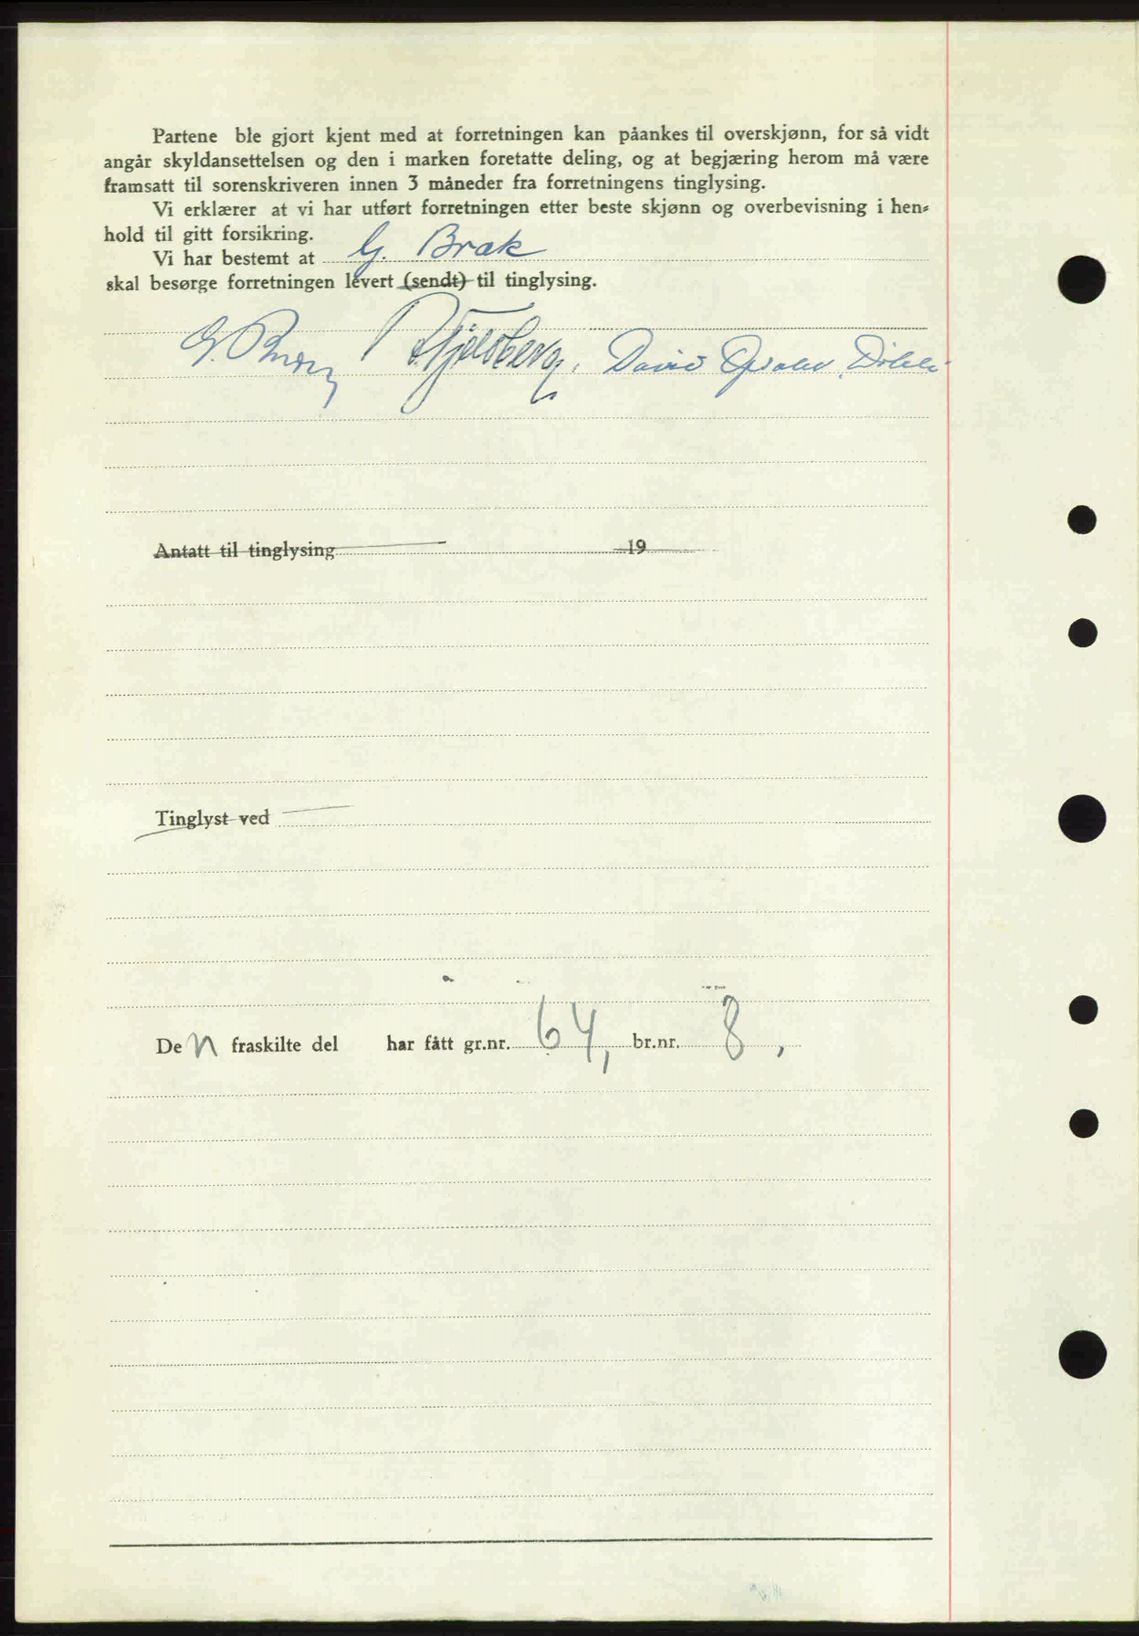 Partene ble gjort kjent med at forretningen kan påankes til overskjønn, for så vidt
angår skyldansettelsen og den i marken foretatte deling, og at begjæring herom må være
framsatt til sorenskriveren innen 3 måneder fra forretningens tinglysing.
Vi erklærer at vi har utført forretningen etter beste skjønn og overbevisning i hen-
hold til gitt forsikring.
Vi har bestemt at G. Brak
skal besørge forretningen levert (sendt) til tinglysing.
David
Antatt til tinglysing 19
Tinglyst ved
De n fraskilte del har fått gr.nr. 64, br.nr. 8,